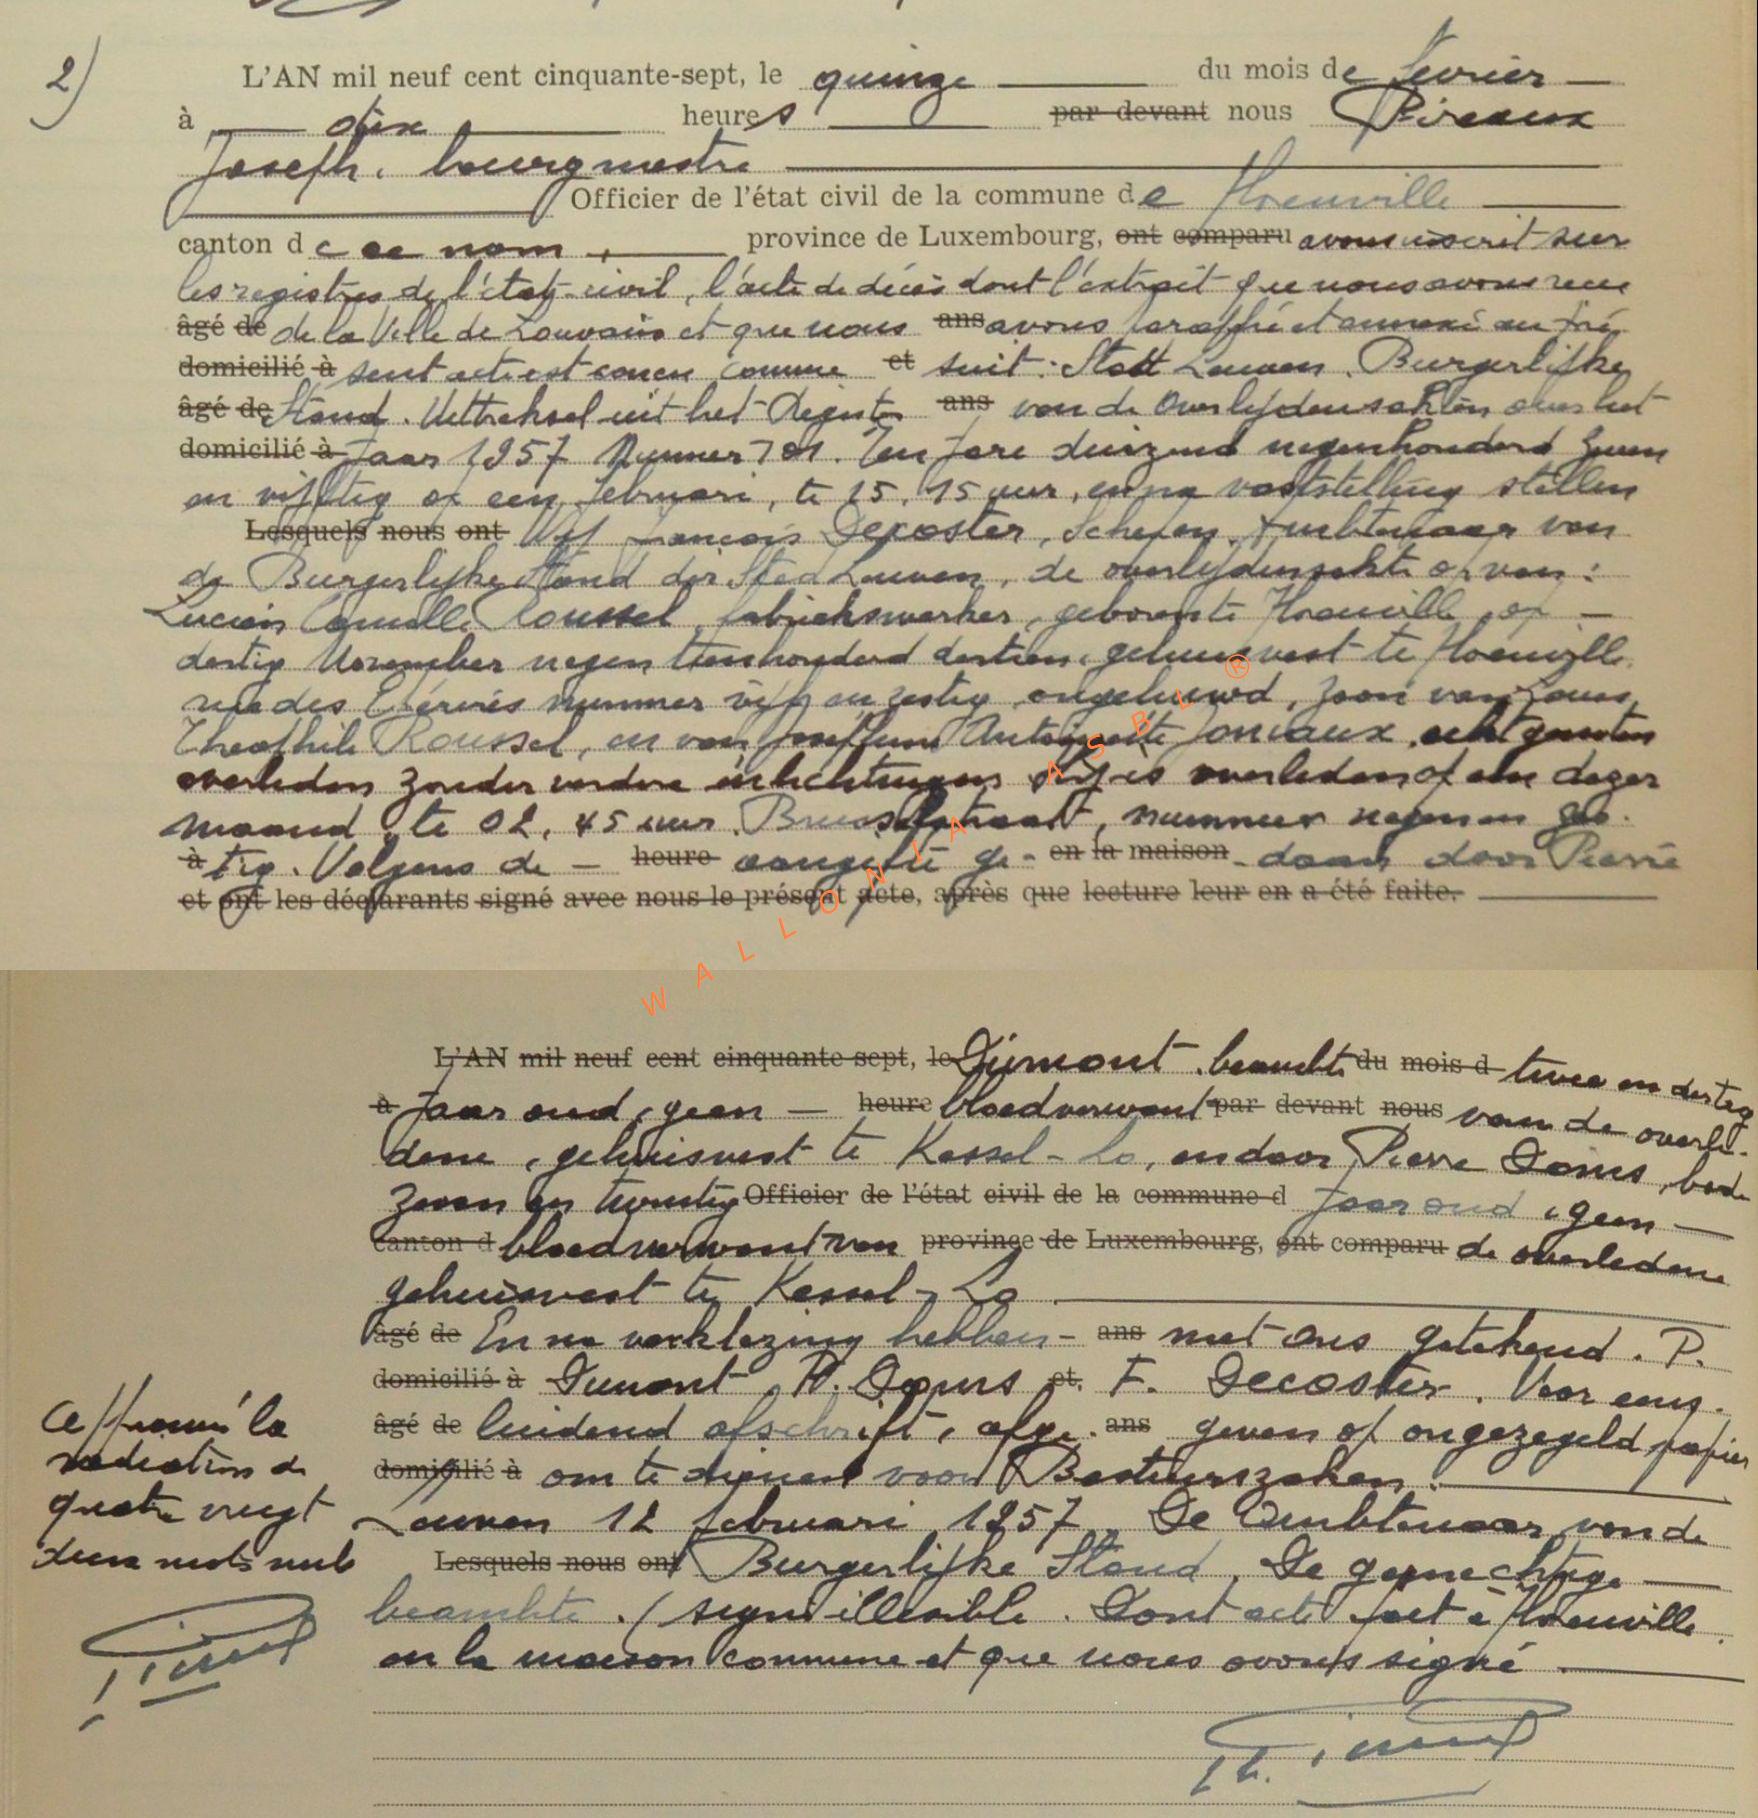 2)
L'AN mil neuf cent cinquante-sept, le quinze du mois de février
à dix heures par devant nous Pireaux
Joseph, bourgmestre
Officier de l'état civil de la commune de
canton de ce nom, province de Luxembourg, ont comparu avons inscrit sur
les registres de l'état-civil, l'acte de décès dont l'extrait que nous avons reçu
âgé de de la Ville de Louvain et que nous ans avons paraffé et annexé au pré
domicilié à sent acte est conçu comme et suit: Stad Leuven. Burgerlijke
âgé de Stand. Uittreksel uit het Register ans van de Overlijdensakten over het
domicilié à Jaar 1957 Nummer 701. Ten Jare duizend negenhonderd zeven
en vijftig op een februari, te 15,15 uur, en na vaststelling stellen
Lesquels nous ont Wij François Decoster, Schepen, Ambtenaar van
de Burgerlijke Stand der Stad Leuven, de overlijdensakte op van:
Lucien Camille Roussel, fabriekswerker, geboren te op
dertig November negentienhonderd dertien, gehuisvest te
rue des nummer vijf en zestig, ongehuwd, zoon van Louis
Théophile Roussel, en van Josephine Antoinette Jonvaux, echtgenoten
overleden zonder verdere inlichtingen. Hij is overleden op een dezer
maand, te 02,45 uur, Brusselsestraat, nummer negen en zes-
à tig. Volgens de heure aangifte ge- en la maison daan door Pierre
et ont les déclarants signé avec nous le présent acte, après que lecture leur en a été faite.
L'AN mil neuf cent cinquante-sept, le Dumont, beambte du mois d twee en dertig
à Jaar oud, geen heure bloedverwant par devant nous van de overle-
dene, gehuisvest te Kessel-Lo, en door Pierre bode
zeven en twintig Officier de l'état civil de la commune d Jaar oud, geen
canton d bloedverwant van province de Luxembourg, ont comparu de overledene
gehuisvest te Kessel-Lo
âgé de En na voorlezing hebben ans met ons getekend. P.
domicilié à Dumont, P. et F. Decoster. Voor eens-
âgé de luidend afschrift, afge- ans geven op ongezegeld papier
domicilié à om te dienen voor Bestuurszaken.
Leuven 12 februari 1957. De Ambtenaar van de
Lesquels nous ont Burgerlijke Stand, De gemachtigde
beambte. (signé illisible. Dont acte fait à
en la maison commune et que nous avons signé
approuvé la
radiation de
quatre vingt
deux mots nuls
W A L L O N I A A S B L ®